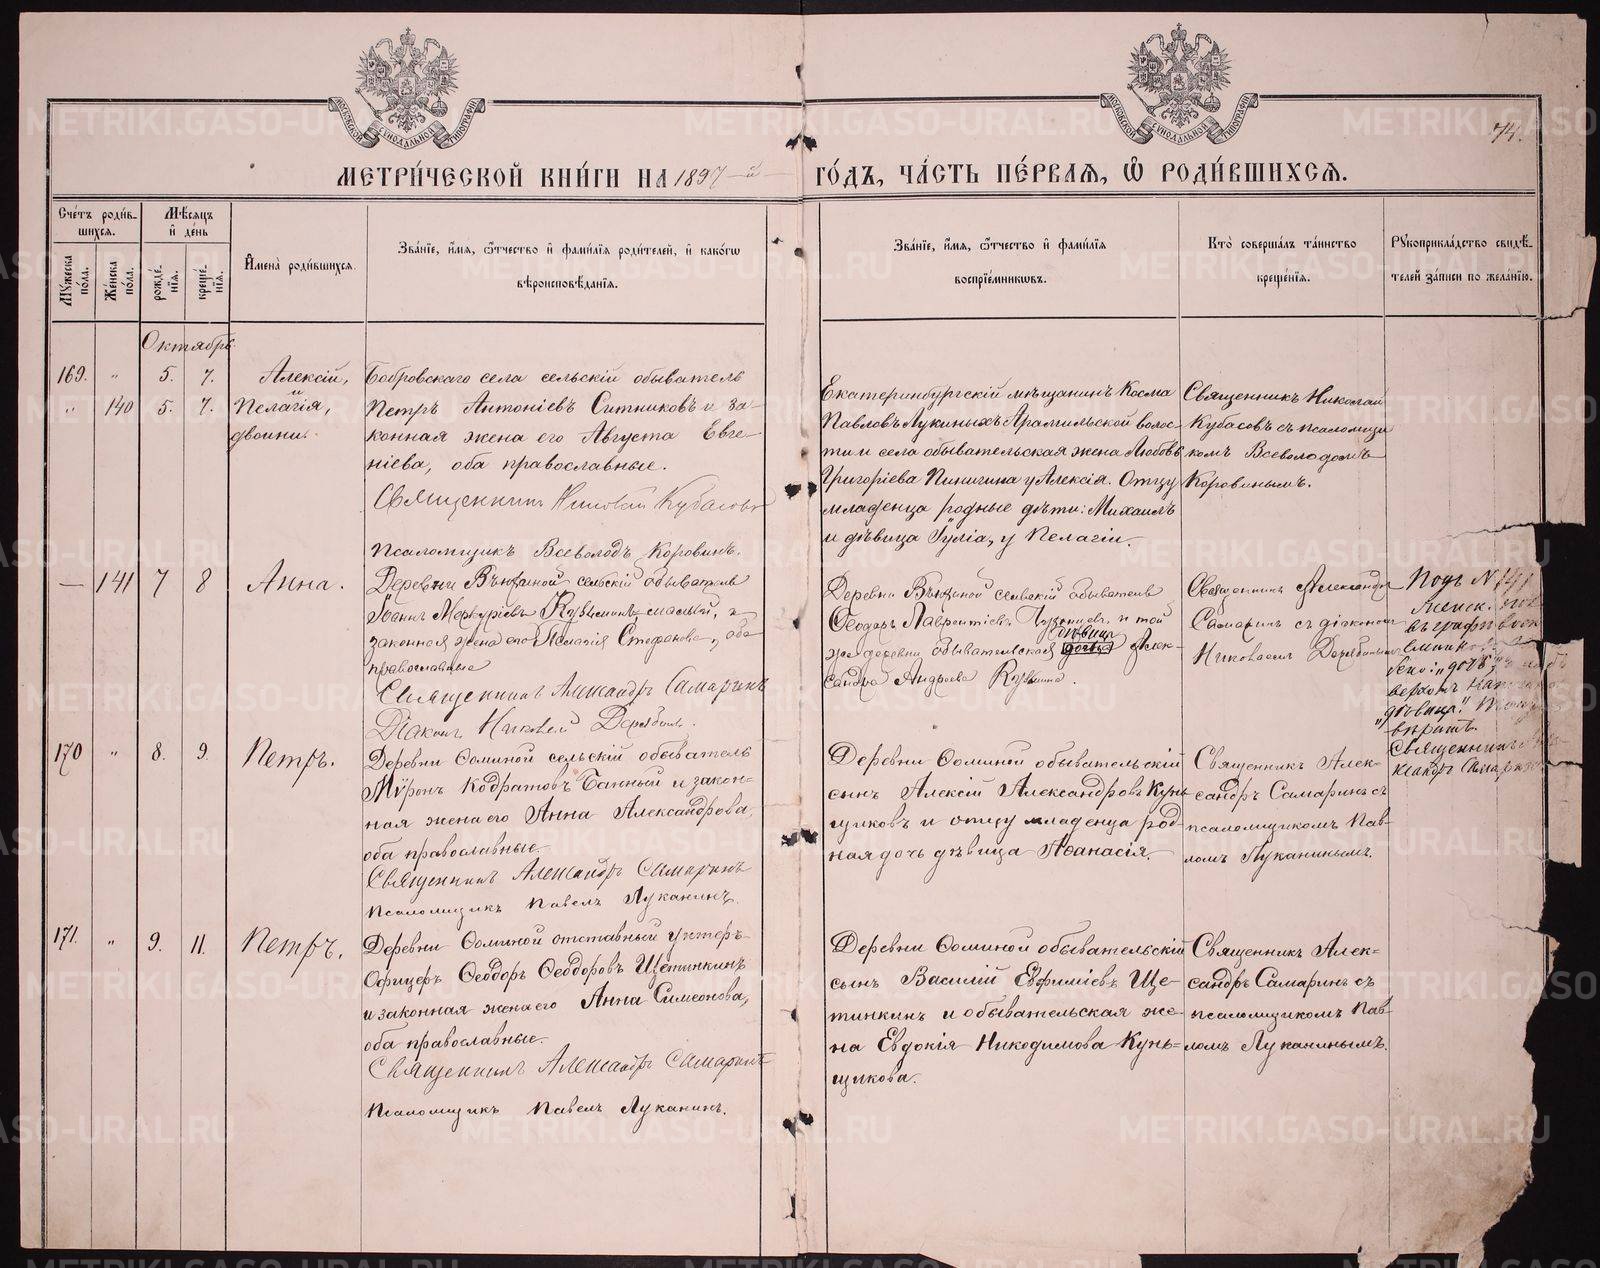 МОСКОВСКОЙ СѴНОДАЛЬНОЙ ТИПОГРАФІИ
МОСКОВСКОЙ СѴНОДАЛЬНОЙ ТИПОГРАФІИ
74.
МЕТРИ́ЧЕСКОЙ КНИ́ГИ НА 1897-й ГО́ДЪ, ЧА́СТЬ ПЕ́РВАЯ, Ѽ РОДИ́ВШИХСЯ.
Сче́тъ роди́в-
шихся.
Мѣ́сяцъ
и҆ де́нь
Му́жеска
по́ла.
Же́нска
по́ла.
рожде́-
нїя.
креще́-
нїя.
И҆мена̀ роди́вшихся.
Зва́нїе, и҆́мя, ѻ҆́тчество и҆ фами́лїя роди́телей, и҆ како́гѡ
вѣроисповѣ́данїя.
Зва́нїе, и҆́мя, ѻ҆́тчество и҆ фами́лїя
воспрїе́мникѡвъ.
Кто̀ соверша́лъ та́инство
креще́нїя.
Рꙋкоприкла́дство свидѣ́-
телей за́писи по жела́нїю.
Октябрь
169. " 5. 7. Алексій,
и
" 140 5. 7. Пелагія,
двойни.
Бобровскаго села сельскій обыватель
Петръ Антоніевъ Ситниковъ и за-
конная жена его Августа Евге-
ніева, оба православные.
Священникъ Николай Кубасовъ
Псаломщикъ Всеволодъ Коровинъ.
Екатеринбургскій мѣщанинъ Косма
Павловъ Лукиныхъ Арамильской волос-
ти и села обывательская жена Любовь
Григоріева Пиничина у Алексія. Отцу
младенца родные дѣти: Михаилъ
и дѣвица Іулія, у Пелагіи.
Священникъ Николай
Кубасовъ съ псаломщи
комъ Всеволодомъ
Коровинымъ.
— 141 7 8 Анна.
Деревни сельскій обыватель
Іоаннъ Меркуріевъ и
законная жена его Пелагія Стефанова, оба
православные
Священникъ Александръ Самаринъ
Діаконъ Николай
Деревни сельскій обыватель
Ѳеодоръ Лаврентіевъ и той
дѣвица
же деревни обывательская дочь Алек-
сандра Андреева
Священникъ Александръ
Самаринъ съ діакономъ
Николаемъ
Подъ № 141
женск. пол
въ графѣ
"дочь"
верхомъ
"дѣвица".
вѣритъ.
Священникъ
Самаринъ
170 " 8. 9. Петръ.
Деревни Ѳоминой сельскій обыватель
Мѵронъ Кодратовъ Банный и закон-
ная жена его Анна Александрова,
оба православные.
Священникъ Александръ Самаринъ
Псаломщикъ Павелъ Луканинъ.
Деревни Ѳоминой обывательскій
сынъ Алексій Александровъ Кунь-
щиковъ и отцу младенца род-
ная дочь дѣвица Аѳанасія.
Священникъ Алек-
сандръ Самаринъ съ
псаломщикомъ Пав-
ломъ Луканинымъ.
171. " 9. 11. Петръ.
Деревни Ѳоминой отставный унтеръ-
офицеръ Ѳеодоръ Ѳеодоровъ Щетинкинъ
и законная жена его Анна Симеонова,
оба православные.
Священникъ Александръ Самаринъ
Псаломщикъ Павелъ Луканинъ.
Деревни Ѳоминой обывательскій
сынъ Василій Евфиміевъ Ще-
тинкинъ и обывательская же-
на Евдокія Никодимова Кунь-
щикова.
Священникъ Алек-
сандръ Самаринъ съ
псаломщикомъ Пав-
ломъ Луканинымъ.
METRIKI.GASO-URAL.RU